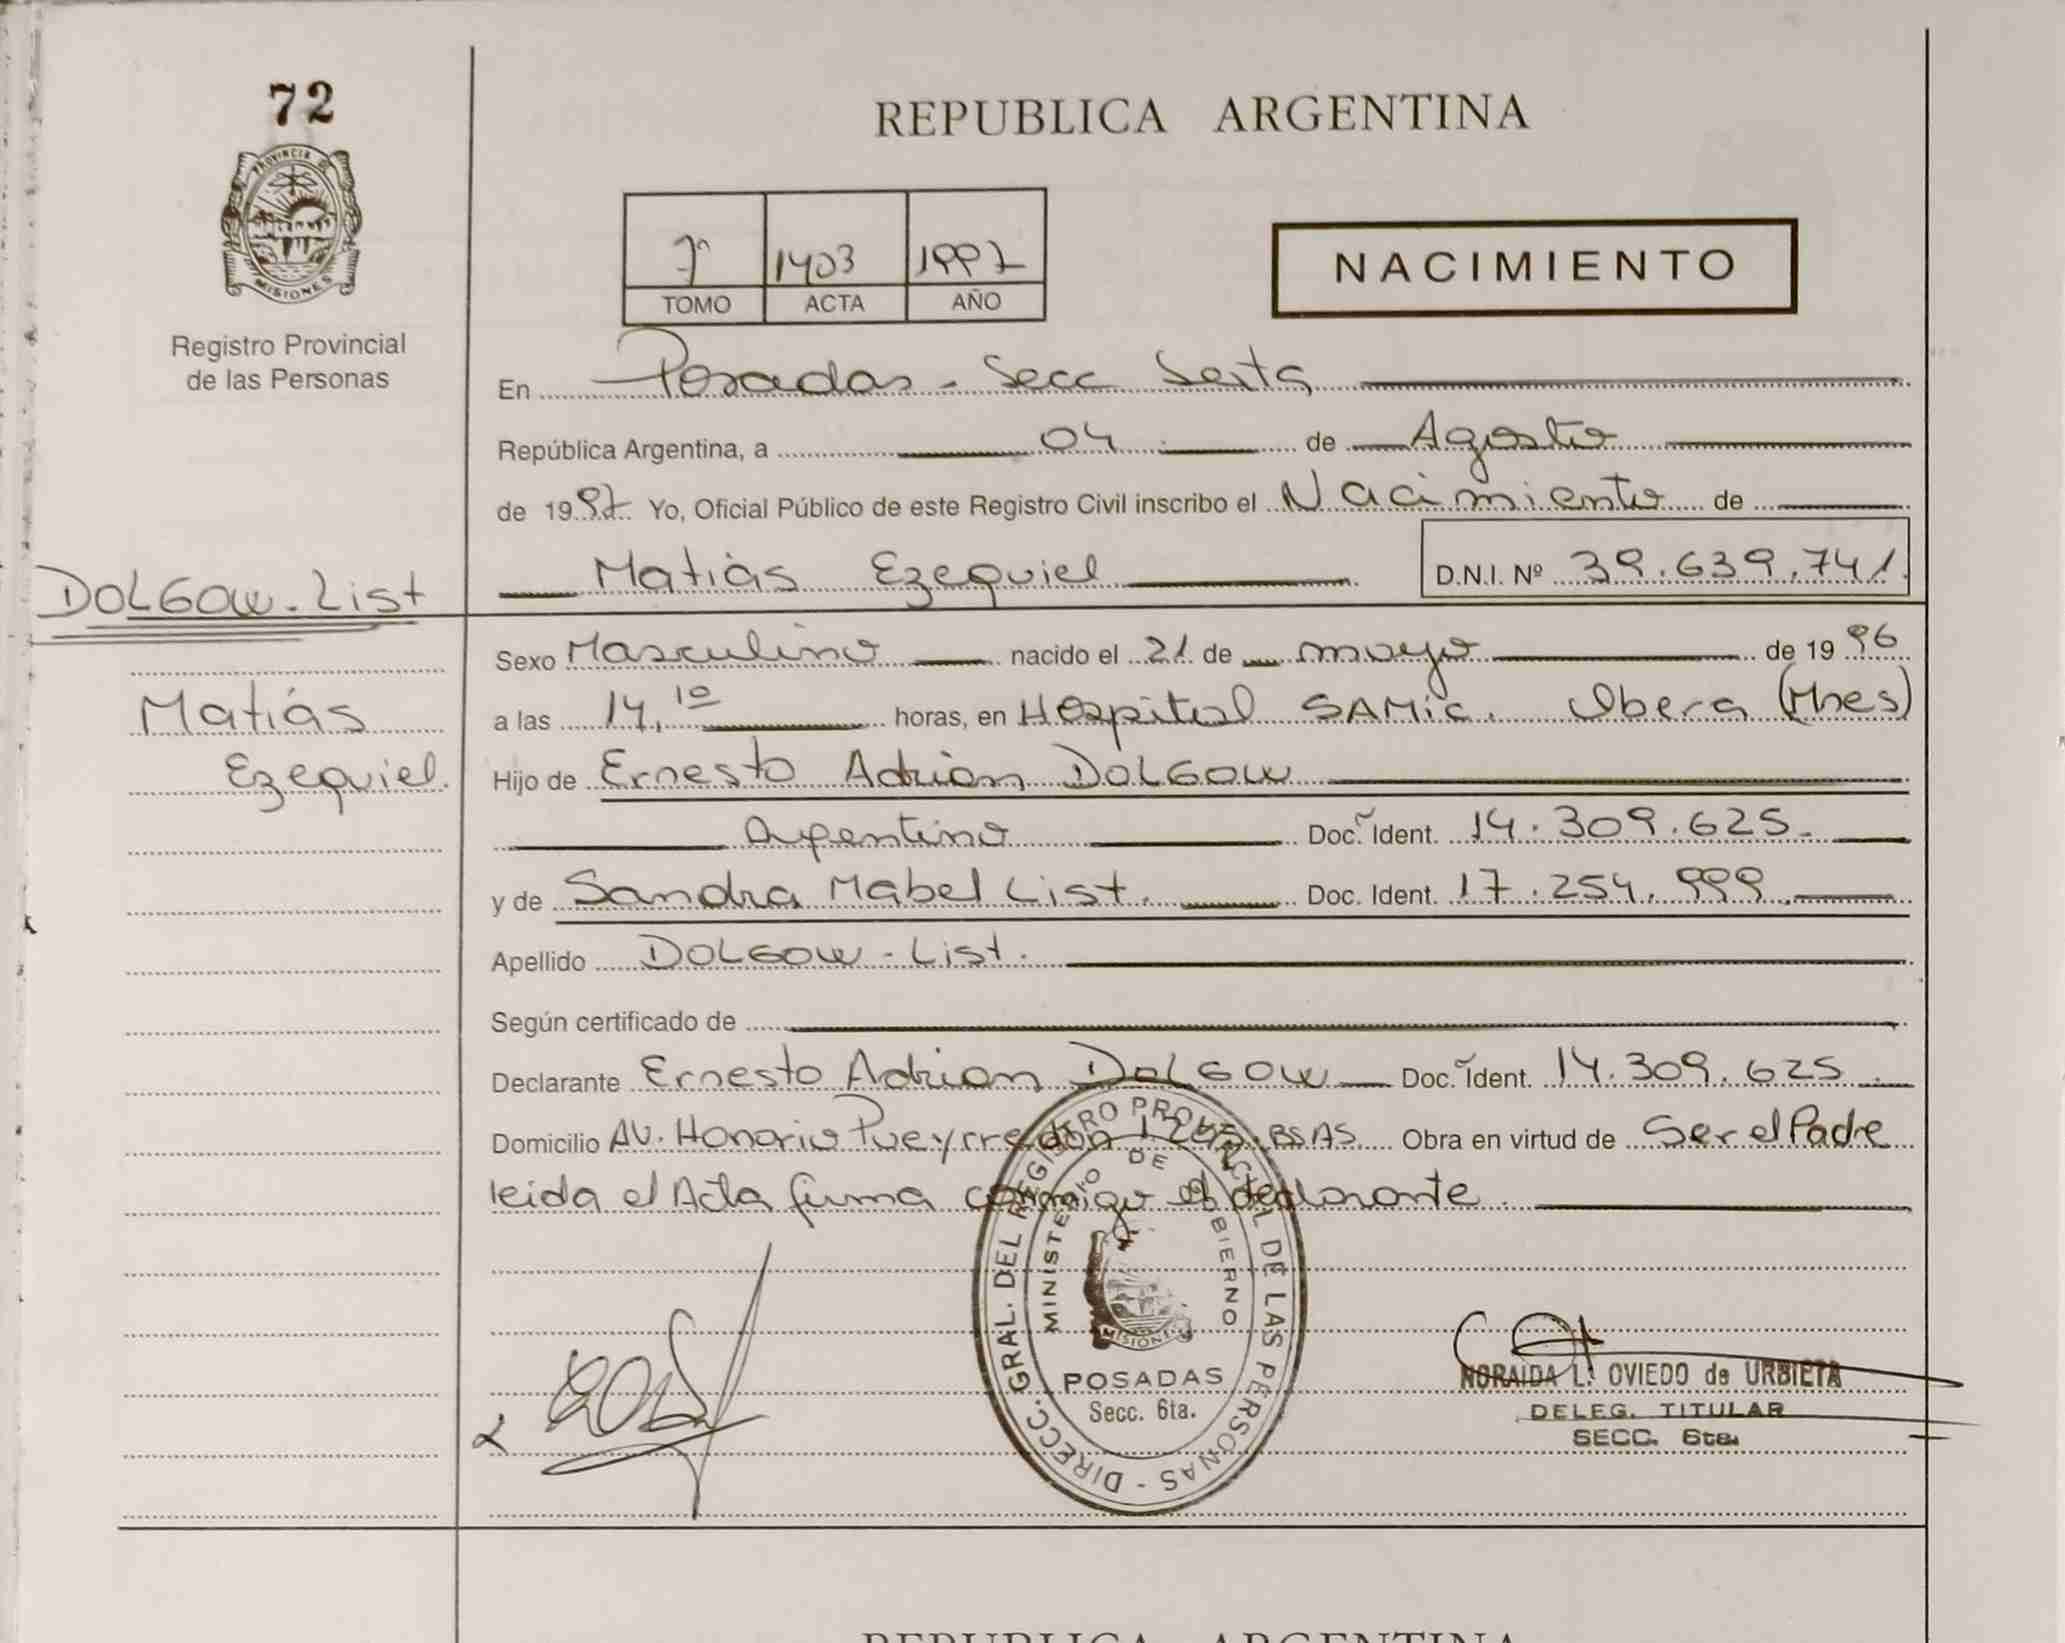 72
PROVINCIA DE
MISIONES
Registro Provincial
de las Personas
DOLGOW - List
Matiás
Ezequiel.
REPUBLICA ARGENTINA
7º 1403 1997
TOMO ACTA AÑO
NACIMIENTO
En Posadas - Secc Sexta
República Argentina, a 04 de Agosto
de 1997 Yo, Oficial Público de este Registro Civil inscribo el Nacimiento de
Matiás Ezequiel D.N.I. Nº 39.639.741
Sexo Masculino nacido el 21 de mayo de 1996
a las 14,10 horas, en Hospital SAMic. Obera (Mnes)
Hijo de Ernesto Adrian DOLGOW
Argentino Doc. Ident. 14.309.625
y de Sandra Mabel List. Doc. Ident. 17.254.999
Apellido DOLGOW - List.
Según certificado de
Declarante Ernesto Adrian DOLGOW Doc. Ident. 14.309.625
Domicilio AV. Honorio Pueyrredon BSAS. Obra en virtud de Ser el Padre
leida el Acta firma conmigo el declarante.
DIRECC. GRAL. DEL REGISTRO PROVINCIAL DE LAS PERSONAS -
MINISTERIO DE GOBIERNO
MISIONES
POSADAS
Secc. 6ta.
NORAIDA L. OVIEDO de URBIETA
DELEG. TITULAR
SECC. 6ta.
REPUBLICA ARGENTINA